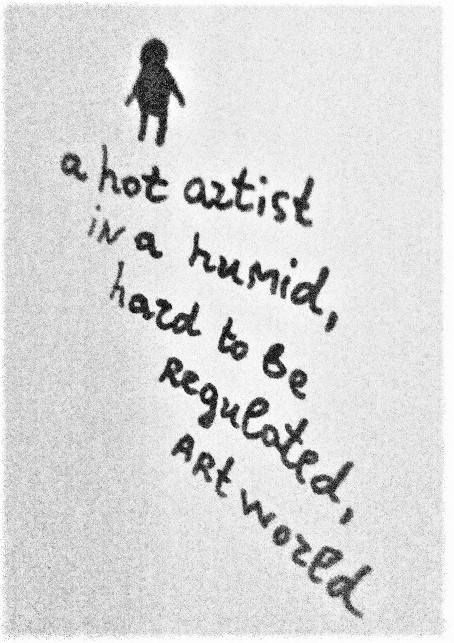 a hot artist
in a humid,
hard to Be
Regulated,
ARt world